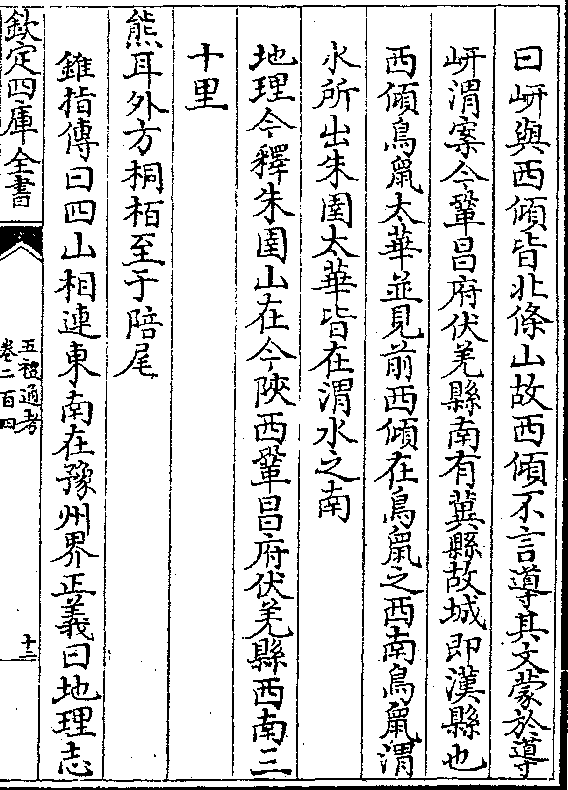 曰岍與西傾皆北條山故西傾不言導其文蒙於導
岍渭案今鞏昌府伏羌縣南有冀縣故城即漢縣也
西傾鳥鼠太華並見前西傾在鳥鼠之西南鳥鼠渭
水所出朱圉太華皆在渭水之南
地理今釋朱圉山在今陜西鞏昌府伏羌縣西南三
十里
熊耳外方桐栢至于陪尾
錐指傳曰四山相連東南在豫州界正義曰地理志
欽定四庫全書
五禮通考
卷二百四
十三